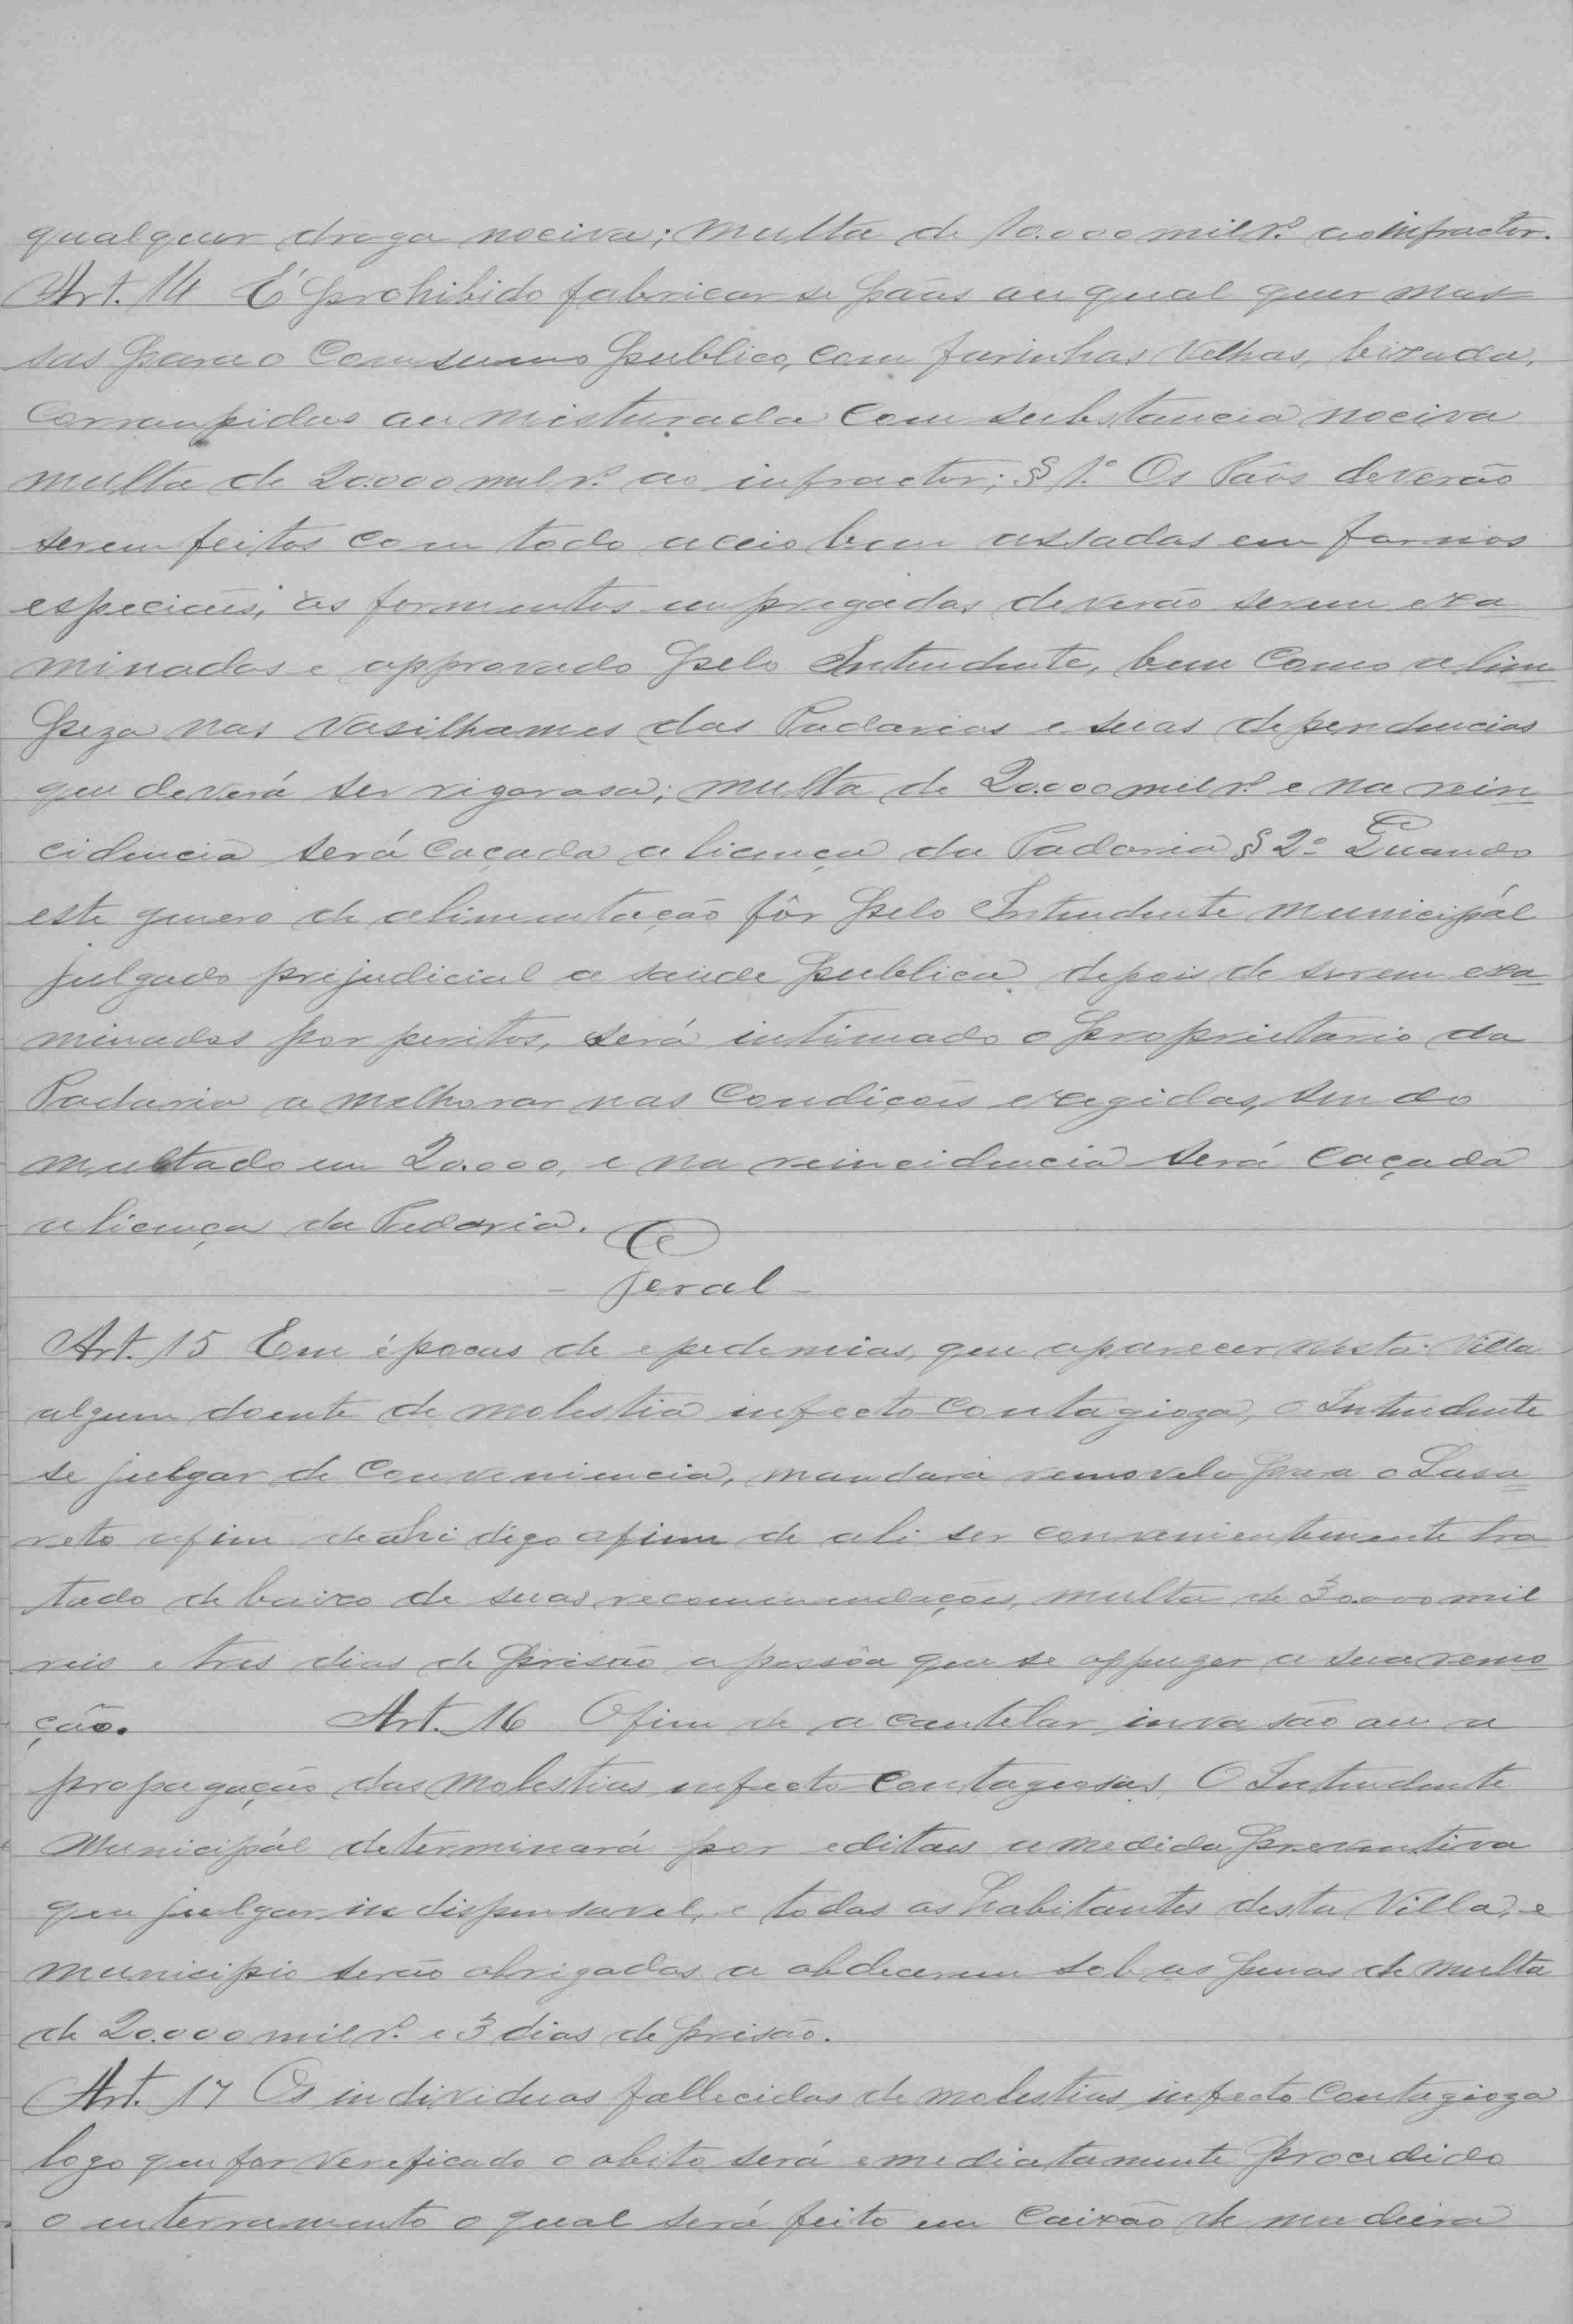 qualquer droga nociva; multa de 10.000 mil rs. ao infractor.
Art. 14 É prohibido fabricar se pães ou qual quer mas
sas para o Comsumo publico, com farinhas Velhas, bixada,
Corrompidas ou misturada Com substancia nociva
multa de 20.000 mil rs. ao infractor; § 1.º Os Pãos deverão
serem feitos com todo aceio bem assados em fornos
especiaes, os formentos empregados deverão serem exa
minados e approvado pelo Intendente, bem Como a lim
peza nas Vasilhames das Padarias e suas dependencias
que deverá ser rigorosa; multa de 20.000 mil rs. e na rein
cidencia será Caçada a licença da Padaria § 2º Quando
este genero de alimentação fôr pelo Intendente municipál
julgado prejudicial a saude publica, depois de serem exa
minados por peritos, será intimado o proprietario da
Padaria a melhorar nas Condições exegidas, sendo
multado em 20.000, e na reincidencia será Caçada
a licença da Padaria.
- Geral -
Art. 15 Em épocas de epedemias, que aparecer nesta Villa
algum doente de molestia infecto Contagioza, o Intendente
se julgar de Conveniencia, mandara removelo para o Lasa
reto afim de ahi digo afim de ali ser convenientemente tra
tado de baixo de suas recommendações, multa de 30.000 mil
reis e tres dias de prisão a pessôa que se oppuzer a sua remo
ção. Art. 16 Ofim de a cautelar inva são ou a
propagação das Molestias infecto Contagiosas, O Intendente
Municipál determinará por editaes a medida preventiva
que julgar in dispensavel, e todos os habitantes desta Villa, e
municipio serão obrigados a obdecerem sob as penas de multa
de 20.000 mil rs. e 3 dias de prisão.
Art. 17 Os individuos fallecidos de molestias infecto Contagioza
logo que for Verificado o obito será emediatamente procedido
o enterramento o qual será feito em Caixão de madeira